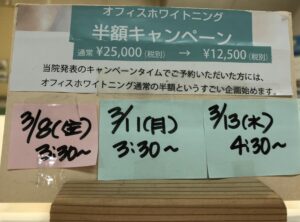 オフィスホワイトニング
半額キャンペーン
通常 ¥25,000(税別) → ¥12,500(税別)
当院発表のキャンペーンタイムでご予約いただいた方には、
オフィスホワイトニング通常の半額というすごい企画始めます。
3/8(金)
3:30~
3/11(月)
3:30~
3/13(水)
4:30~